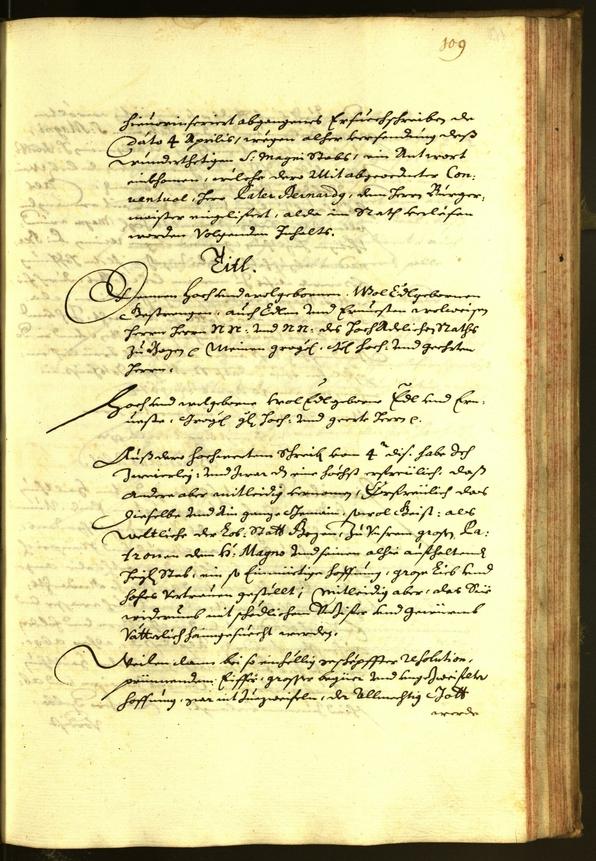 109
hieuorinserirt abgangenes Ersuechschreiben de
dato 4 Aprilis, wegen alher versendung deß
wunderthetigen S: Magni Stabs, ein Antwort
einkhomen, welche dero Mitabgeordneter Con:
ventual, Herr Pater Bernardg, dem Herrn Burger:
maister eingelifert, alda im Rath verlesen
worden volgenden Inhalts.
Titl.
Denen Hoch und wolgebornen, Wol Edlgebornen
Gestrengen, auch Edlen und Ernuesten wolweisen
Herrn Herrn NN: und NN: des Hochadelichen Raths
zu Bozen Meinen Hoch: und geehrten
Herrn.
Hoch und wolgeborne wol Edlgeborne Edl und Ern:
ueste, Hoch: und geerte Herrn
Auß dero hochwertem Schreib vom 4 dis: habe Ich
Zweierley, und zwar eine höchst erfreulich, daß
Andere aber mitleidig vernomen, Erfreulich das
dieselbe und Ein ganze Gemein, sowol Geist: als
weltliche der Lob: Statt Bozen, zu Unserm gross Pa:
tronen dem H: Magno und seinem alhie aufhaltend
Heyl Stab, ein so Einmüetige hoffnung, grosse Lieb und
hohes Vertrauen gestellt, mitleidig aber, das Sie
widerumb mit schedlichen Unzifer und gewürmb
Vätterlich haimgesuecht werden.
Weilen dann bei so einhellig geschöpffter resolution,
prinnendem Eiffer, grosser begier und ungezweiflter
hoffnung, gar nit zu zweiflen, der Allmechtig Gott
werde